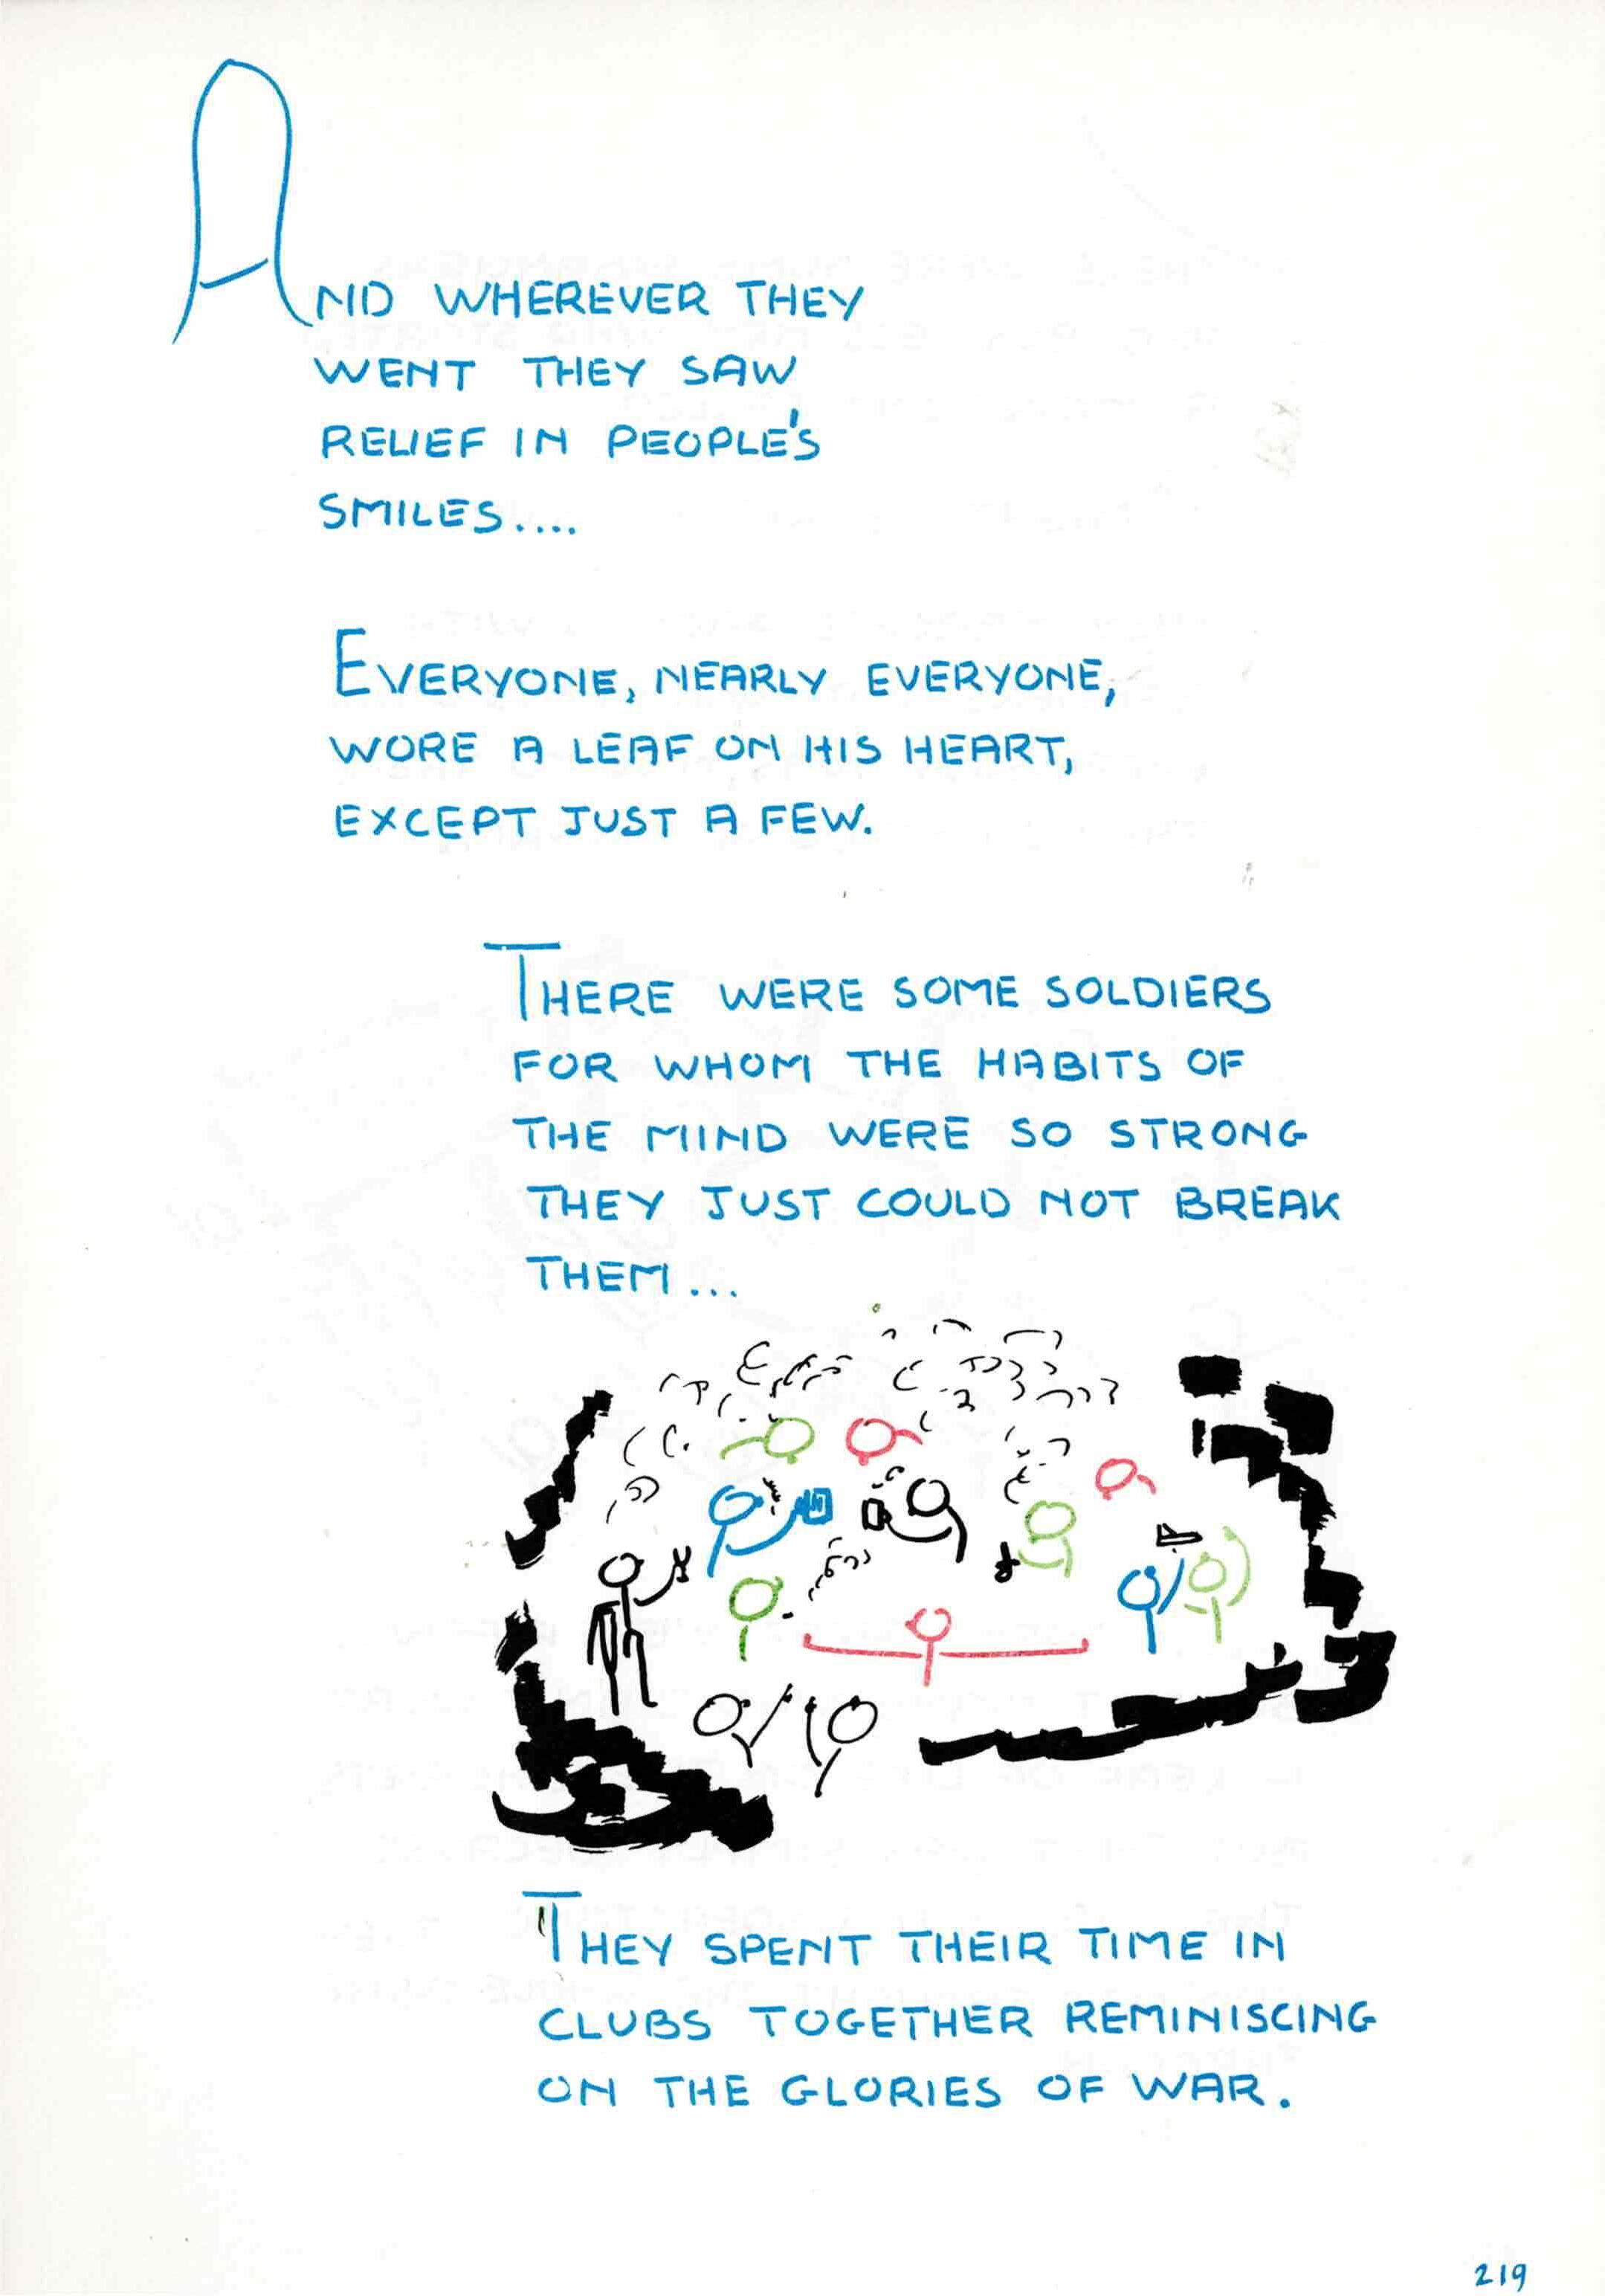 AND WHEREVER THEY
WENT THEY SAW
RELIEF IN PEOPLE'S
SMILES....
EVERYONE, NEARLY EVERYONE,
WORE A LEAF ON HIS HEART,
EXCEPT JUST A FEW.
THERE WERE SOME SOLDIERS
FOR WHOM THE HABITS OF
THE MIND WERE SO STRONG
THEY JUST COULD NOT BREAK
THEM...
THEY SPENT THEIR TIME IN
CLUBS TOGETHER REMINISCING
ON THE GLORIES OF WAR.
219